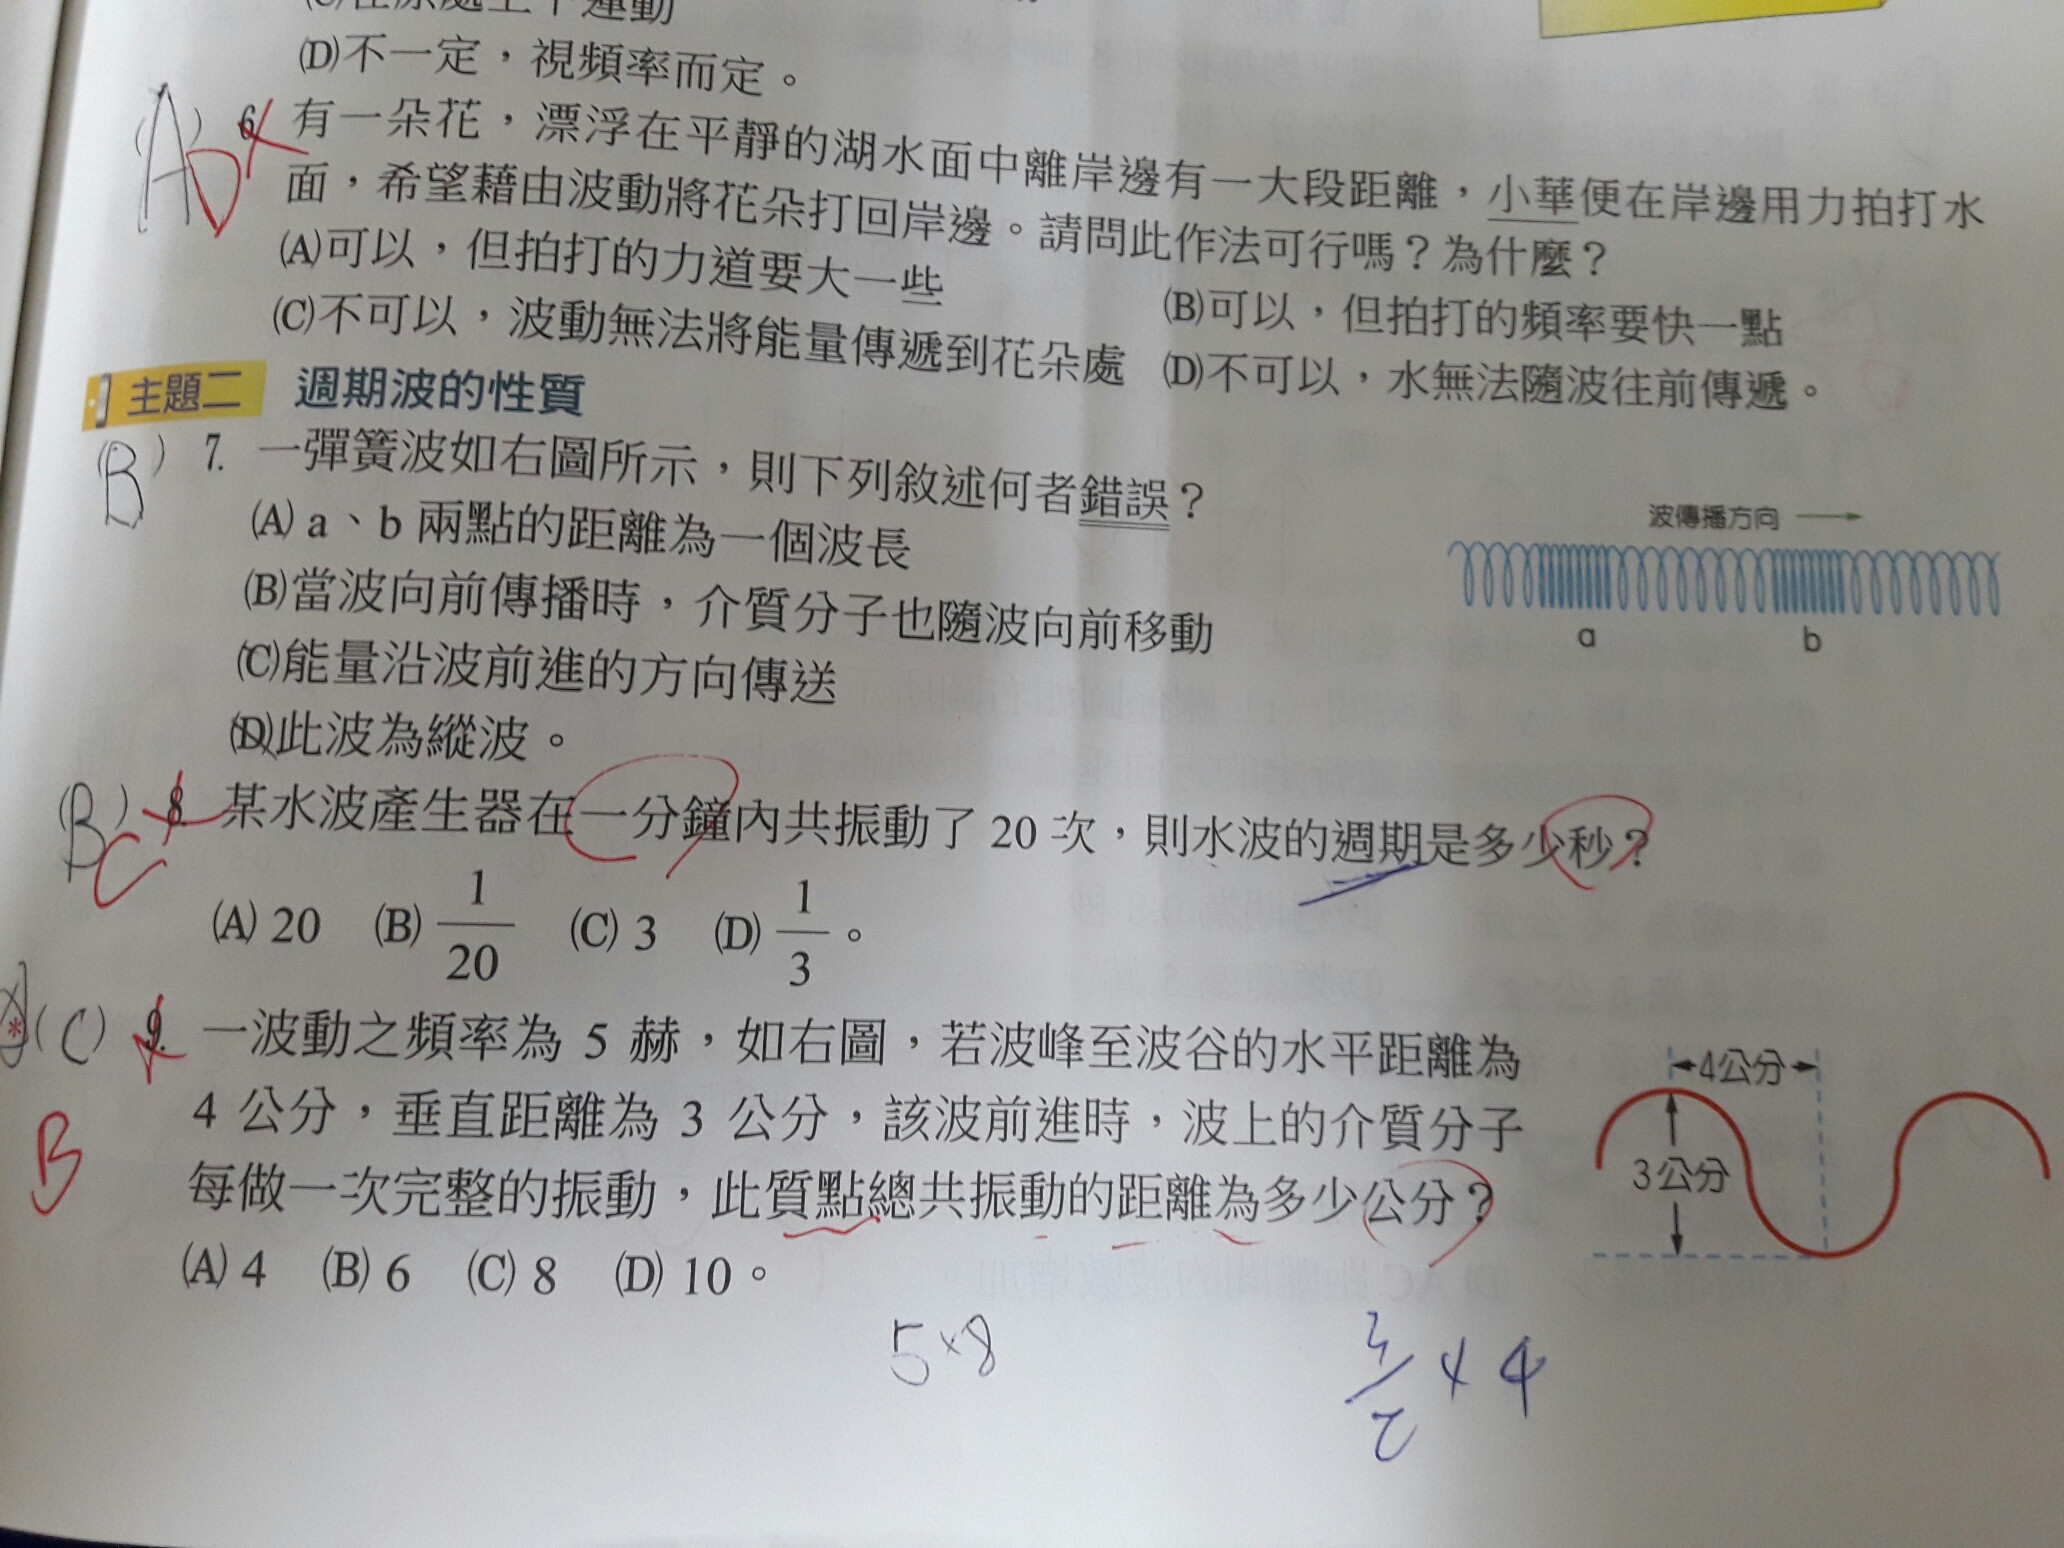 (D)不一定，視頻率而定。
(A) D 6. 有一朵花，漂浮在平靜的湖水面中離岸邊有一大段距離，小華便在岸邊用力拍打水
面，希望藉由波動將花朵打回岸邊。請問此作法可行嗎？為什麼？
(A)可以，但拍打的力道要大一些 (B)可以，但拍打的頻率要快一點
(C)不可以，波動無法將能量傳遞到花朵處 (D)不可以，水無法隨波往前傳遞。
主題二 週期波的性質
(B) 7. 一彈簧波如右圖所示，則下列敘述何者錯誤？
(A) a、b 兩點的距離為一個波長
(B)當波向前傳播時，介質分子也隨波向前移動
(C)能量沿波前進的方向傳送
(D)此波為縱波。
波傳播方向
a b
(B) C 8. 某水波產生器在一分鐘內共振動了 20 次，則水波的週期是多少秒？
(A) 20 (B) 1/20 (C) 3 (D) 1/3。
*(C) 9. 一波動之頻率為 5 赫，如右圖，若波峰至波谷的水平距離為
4 公分，垂直距離為 3 公分，該波前進時，波上的介質分子
B 每做一次完整的振動，此質點總共振動的距離為多少公分？
(A) 4 (B) 6 (C) 8 (D) 10。
4公分
3公分
5×8
3/2 × 4